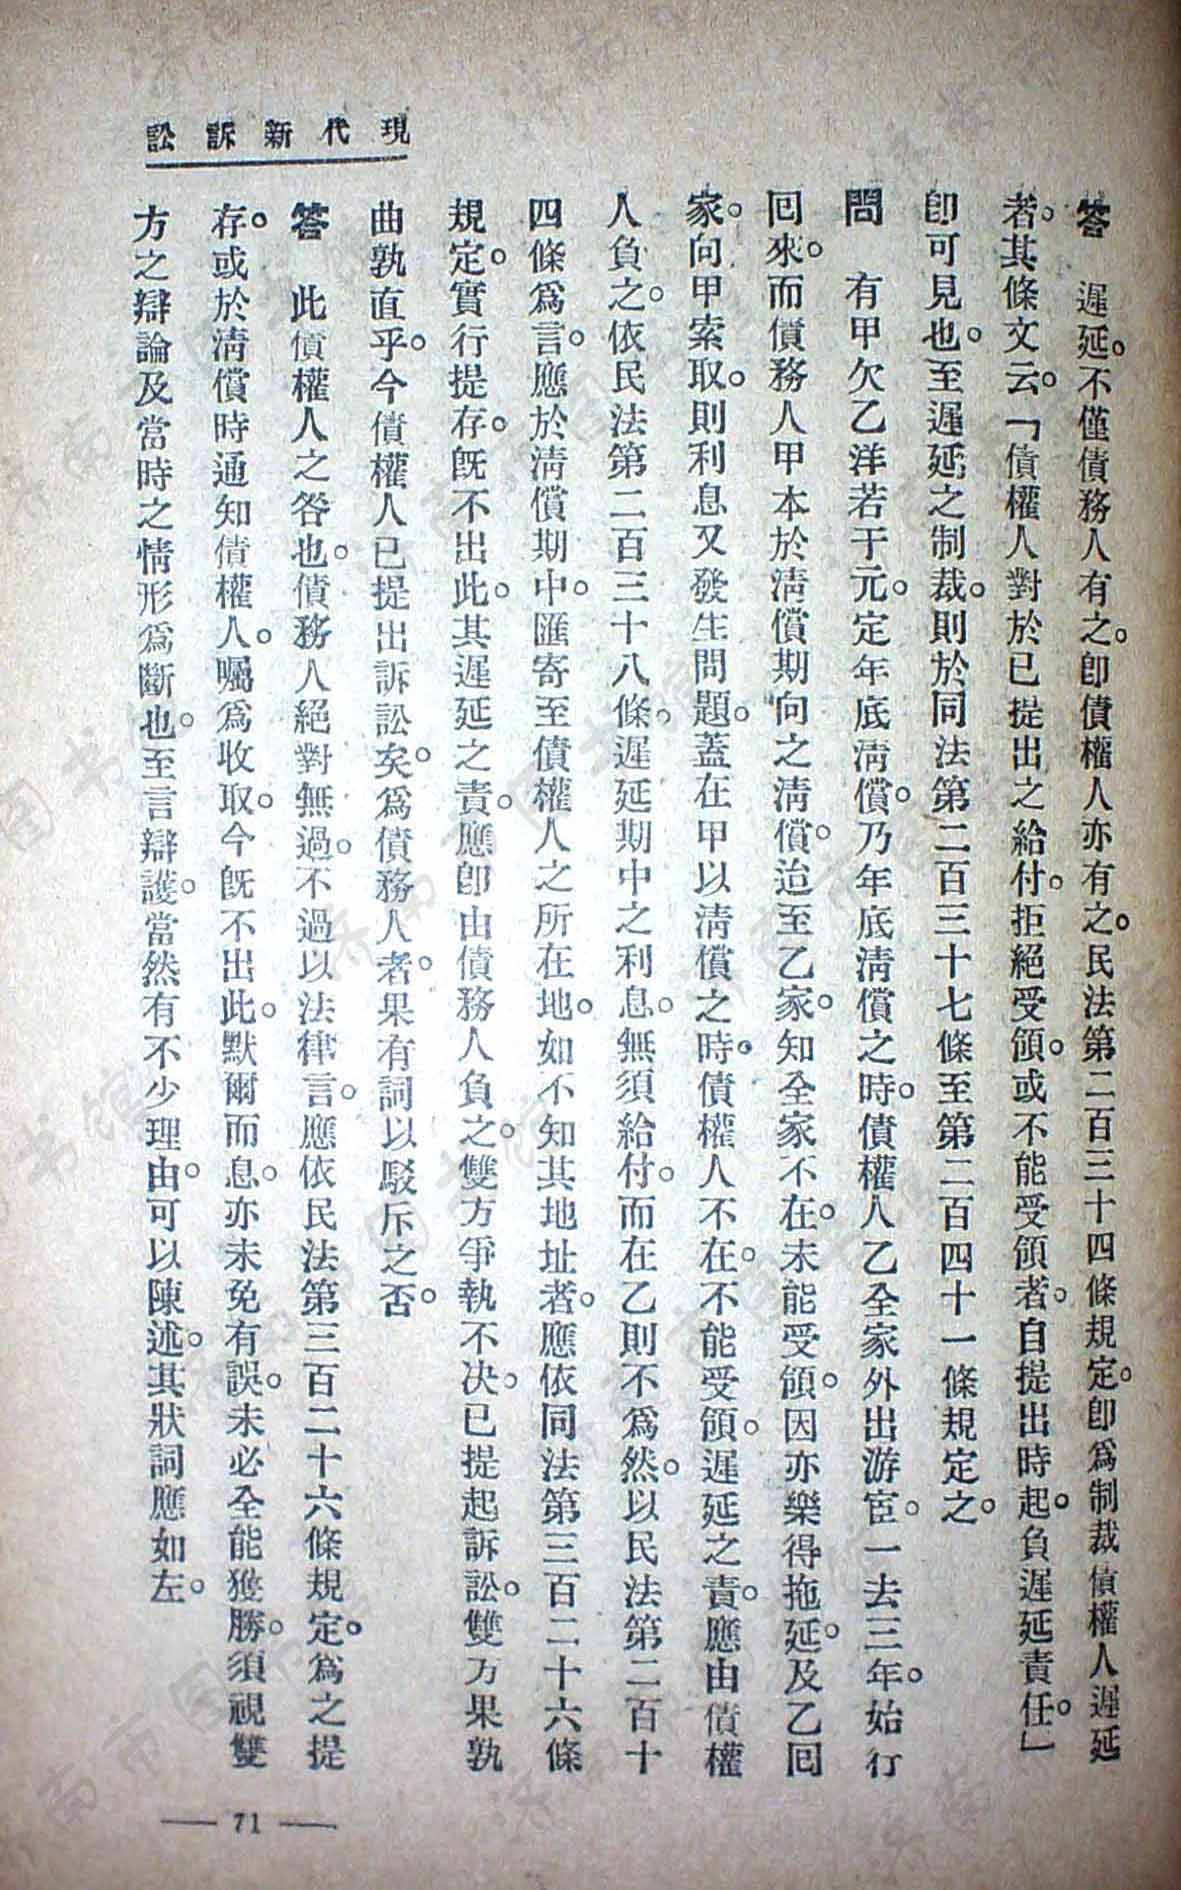 現代新訴訟
答　遲延。不僅債務人有之。卽債權人亦有之。民法第二百三十四條規定。卽爲制裁債權人遲延
者。其條文云。「債權人對於已提出之給付。拒絕受領。或不能受領者。自提出時起。負遲延責任。」
卽可見也。至遲延之制裁。則於同法第二百三十七條至第二百四十一條規定之。
問　有甲欠乙洋若干元。定年底淸償。乃年底淸償之時。債權人乙全家外出游宦。一去三年。始行
回來。而債務人甲本於淸償期向之淸償。迨至乙家。知全家不在。未能受領。因亦樂得拖延。及乙回
家。向甲索取。則利息又發生問題。蓋在甲以淸償之時。債權人不在。不能受領。遲延之責。應由債權
人負之。依民法第二百三十八條。遲延期中之利息。無須給付。而在乙則不爲然。以民法第二百十
四條爲言。應於淸償期中。匯寄至債權人之所在地。如不知其地址者。應依同法第三百二十六條
規定。實行提存。旣不出此。其遲延之責。應卽由債務人負之。雙方爭執不決。已提起訴訟。雙方果孰
曲孰直乎。今債權人已提出訴訟矣。爲債務人者。果有詞以駁斥之否。
答　此債權人之咎也。債務人絕對無過。不過以法律言。應依民法第三百二十六條規定。爲之提
存。或於淸償時通知債權人。囑爲收取。今旣不出此。默爾而息。亦未免有誤。未必全能獲勝。須視雙
方之辯論及當時之情形爲斷也。至言辯護。當然有不少理由。可以陳述。其狀詞應如左。
— 71 —